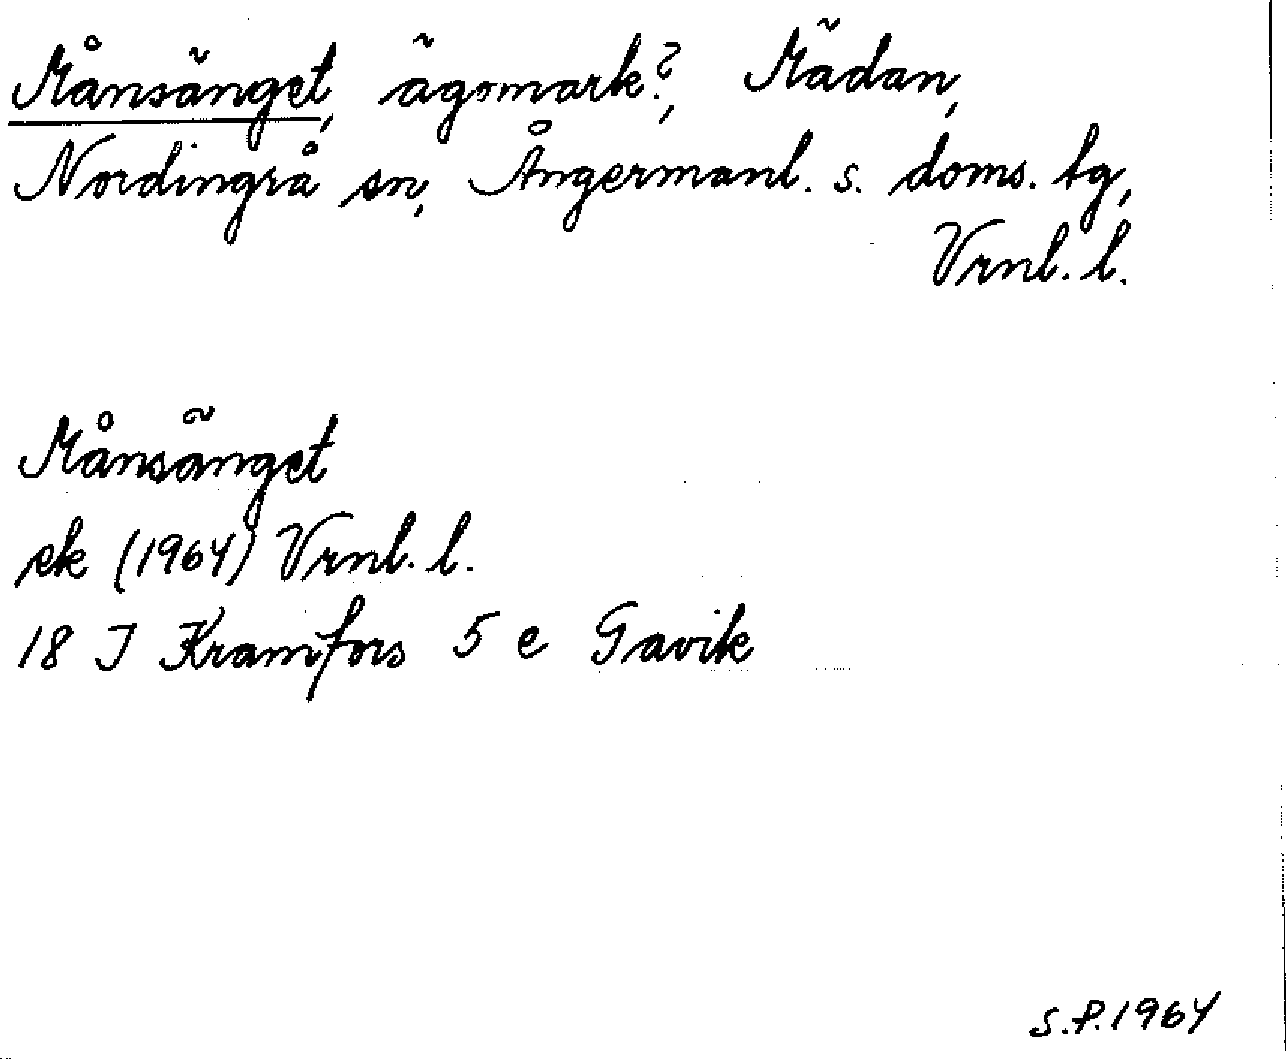 Månsänget, ägomark?, Mädan,
Nordingrå sn, Ångermanl. s. doms. tg,
Vrnl. l.
Månsänget
ek (1964) Vrnl. l.
18 J Kramfors 5 e Gavik
S.P. 1964